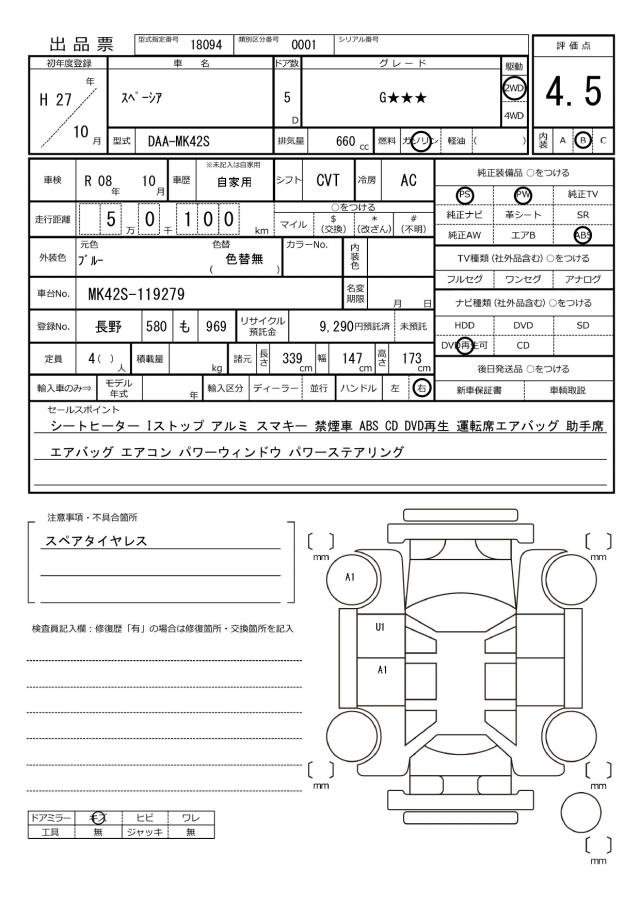 出品票 型式指定番号 18094 類別区分番号 0001 シリアル番号
初年度登録 車名 ドア数 グレード 駆動 評価点
H 27 年 10 月 スペーシア 5 D G★★★ 2WD 4WD 4.5
型式 DAA-MK42S 排気量 660 cc 燃料 ガソリン 軽油 ( ) 内装 A B C
車検 R 08 年 10 月 車歴 ※未記入は自家用 自家用 シフト CVT 冷房 AC
純正装備品 ○をつける
PS PW 純正TV
走行距離 5 万 0 千 1 0 0 km ○をつける
マイル $ (交換) * (改ざん) # (不明)
純正ナビ 革シート SR
純正AW エアB ABS
外装色 元色 ブルー 色替 ( 色替無 ) カラーNo. 内装色
TV種類 (社外品含む) ○をつける
フルセグ ワンセグ アナログ
車台No. MK42S-119279 名変期限 月 日
ナビ種類 (社外品含む) ○をつける
登録No. 長野 580 も 969 リサイクル預託金 9,290円預託済 未預託
HDD DVD SD
DVD再生可 CD
定員 4 ( ) 人 積載量 kg 諸元 長さ 339 cm 幅 147 cm 高さ 173 cm
後日発送品 ○をつける
輸入車のみ⇒ モデル年式 年 輸入区分 ディーラー 並行 ハンドル 左 右
新車保証書 車輌取説
セールスポイント
シートヒーター Iストップ アルミ スマキー 禁煙車 ABS CD DVD再生 運転席エアバッグ 助手席
エアバッグ エアコン パワーウィンドウ パワーステアリング
注意事項・不具合箇所
スペアタイヤレス
検査員記入欄：修復歴「有」の場合は修復箇所・交換箇所を記入
〔 〕 mm 〔 〕 mm
A1
U1
A1
〔 〕 mm 〔 〕 mm
〔 〕 mm
ドアミラー キズ ヒビ ワレ
工具 無 ジャッキ 無